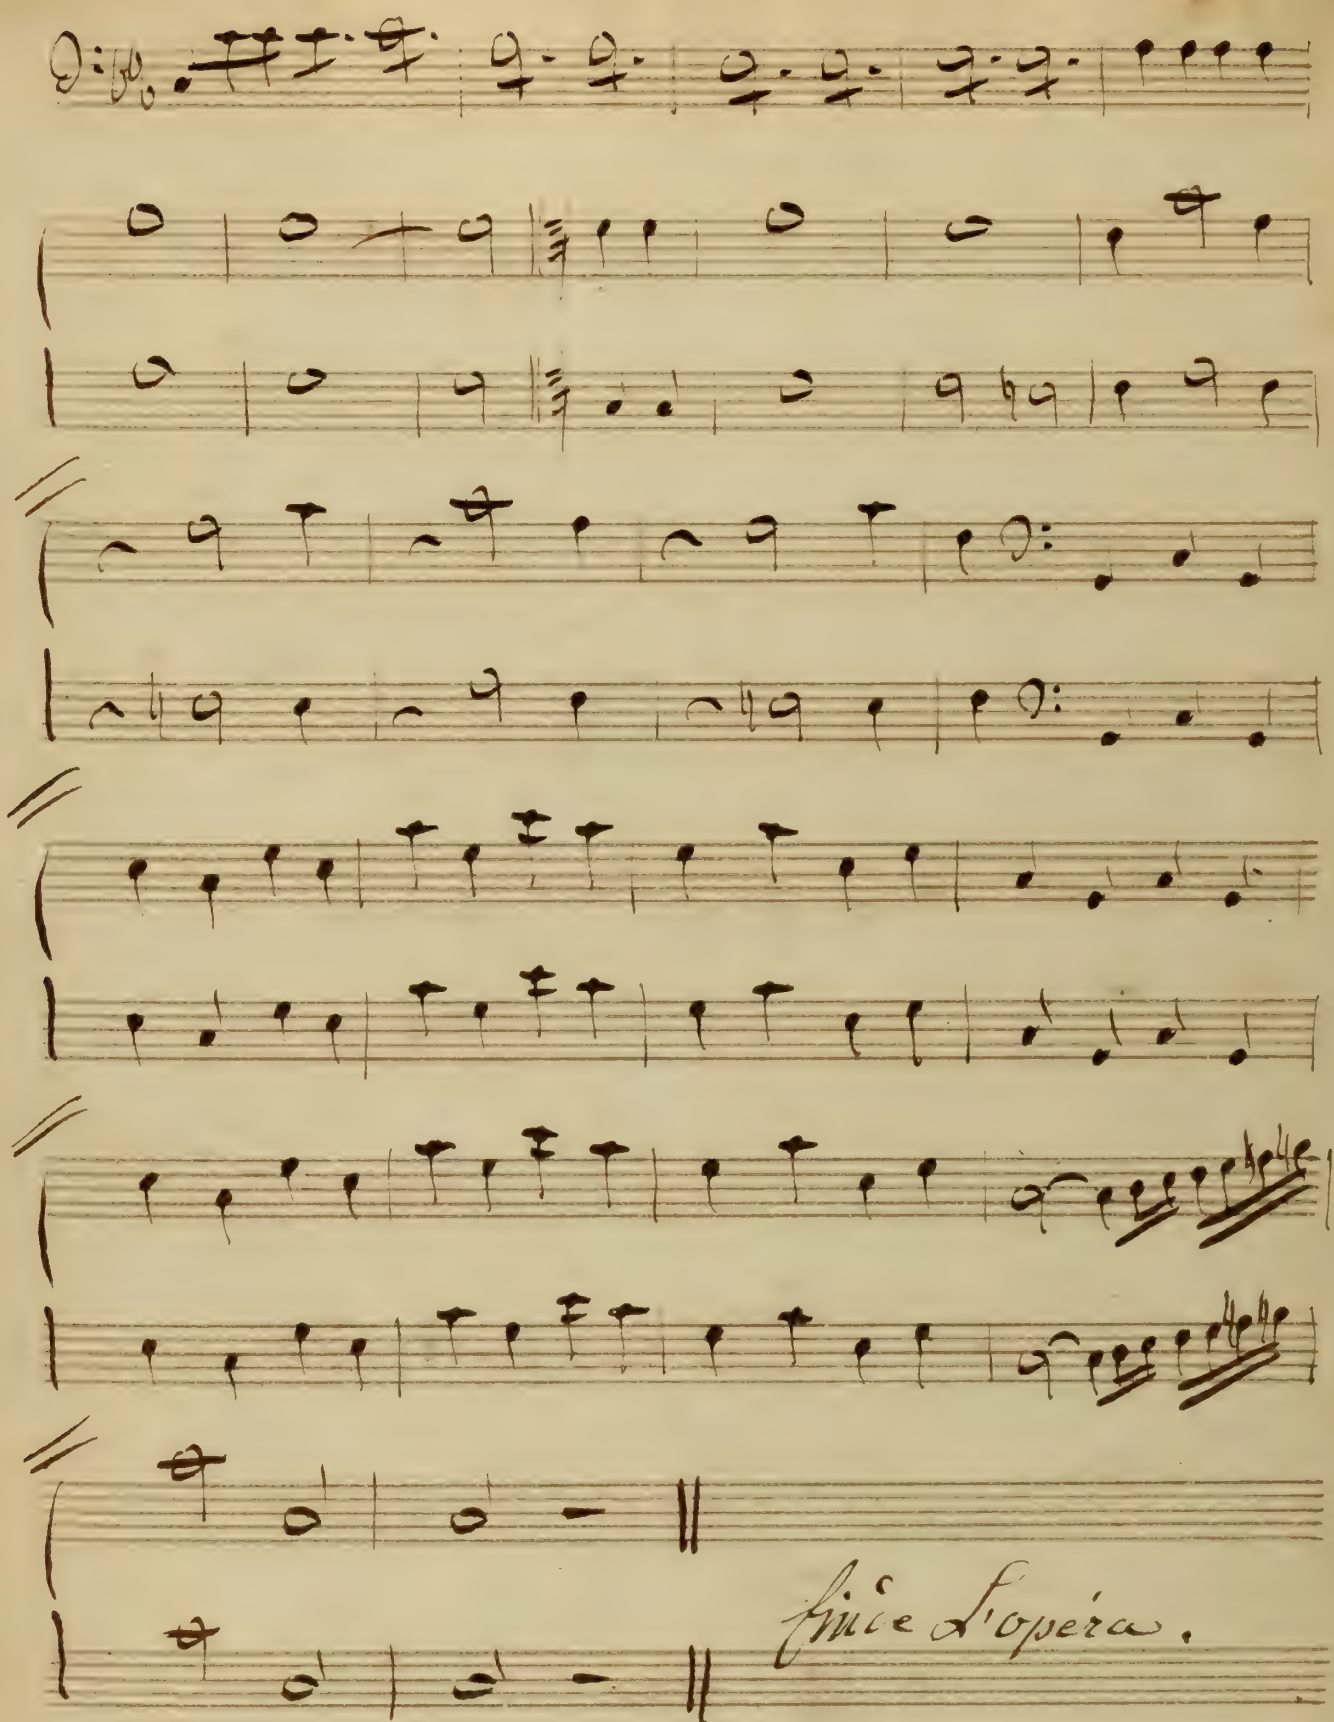 finice L'opéra.